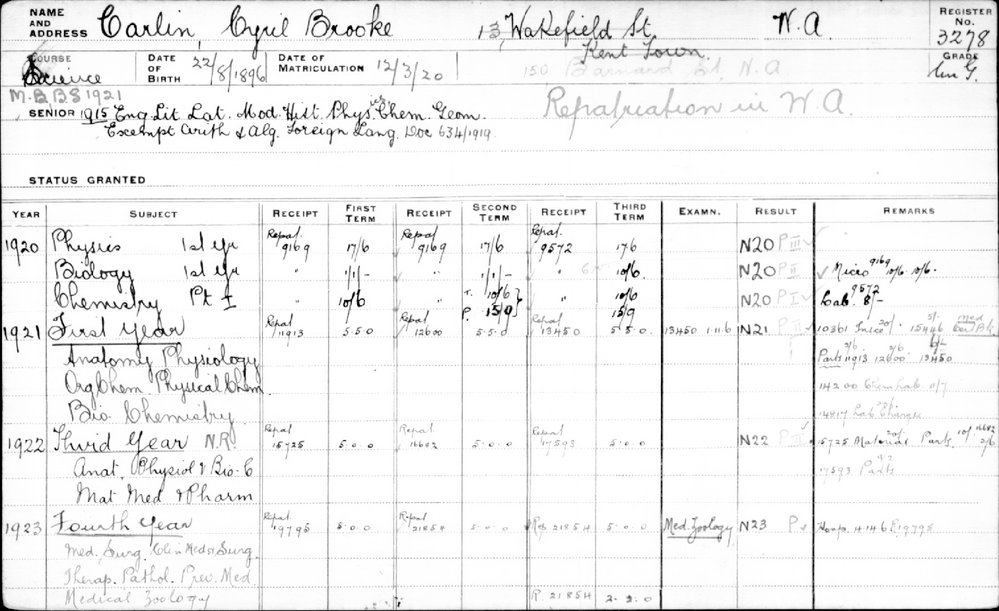 NAME AND ADDRESS Carlin, Cyril Brooke 13, Wakefield St. W.A. REGISTER No. 3278
Kent Town.
COURSE Science DATE OF BIRTH 22/8/1896 DATE OF MATRICULATION 12/3/20 150 Barnard St, N.A GRADE
M.B B S 1921
SENIOR 1915 Eng Lit Lat. Mod. Hist. Phys. Chem. Geom. Repatriation in W.A
Exempt Arith & Alg. Foreign Lang. Doc 634/1919
STATUS GRANTED
YEAR SUBJECT RECEIPT FIRST TERM RECEIPT SECOND TERM RECEIPT THIRD TERM EXAMN. RESULT REMARKS
1920 Physics 1st Yr Repat 9169 17/6 Repat 9169 17/6 Repat. 9572 17/6 N20 P III
Biology 1st Yr " 1/1/- " 1/1/- " 10/6. N20 P II Micro 9169 10/6. 10/6.
Chemistry Pt I " 10/6 " T. 10/6 P. 15/9 " 10/6 15/9 N20 P I Lab. 9572 8/-
1921 First Year Repat 11913 5.5.0 Repat 12600 5.5.0 Repat 13450 5.5.0. 13450 1.11.6 N21 P II 10361 20/- 15446 5/-
Anatomy Physiology Parts 11913 12600 13450
Org Chem. Physical Chem. 14200 Chem Lab 0/7
Bio. Chemistry 14417 Lab Charge
1922 Third Year N.R. Repat 15725 5.0.0 Repat 16682 5.0.0 Repat 17593 5.0.0 N22 15725 Material 20/- Parts 10/- 16682 2/6
Anat. Physiol & Bio-C 17593 Parts
Mat Med & Pharm
1923 Fourth Year Repat 19795 5.0.0 Repat 21854 5.0.0 Rep 21854 5.0.0 Med. Zoology N23 P Hosp. 4146 R. 19795
Med. Surg. Clin Med & Surg.
Therap. Pathol. Prev. Med.
Medical Zoology R. 21854 2.2.0